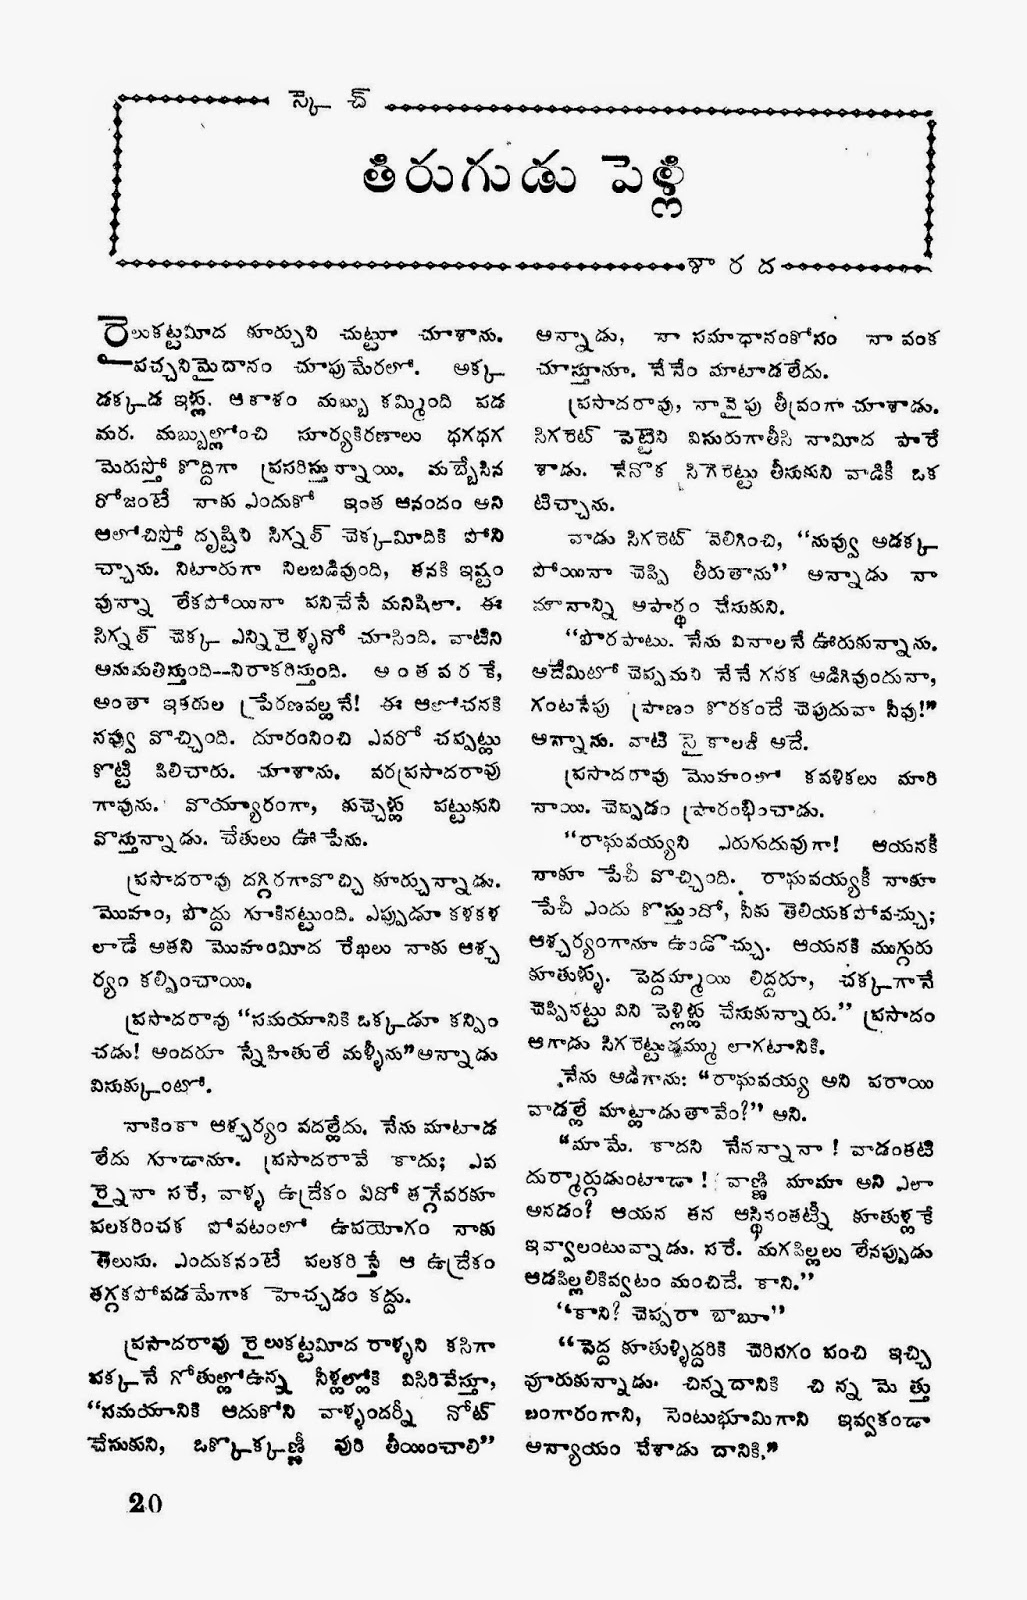 స్కెచ్
తిరుగుడు పెళ్లి
శారద
రైలుకట్టమీద కూర్చుని చుట్టూ చూశాను.
పచ్చనిమైదానం చూపుమేరలో. అక్క
డక్కడ ఇళ్లు. ఆకాశం మబ్బు కమ్మింది పడ
మర. మబ్బుల్లోంచి సూర్యకిరణాలు ధగధగ
మెరుస్తో కొద్దిగా ప్రసరిస్తున్నాయి. మబ్బేసిన
రోజంటే నాకు ఎందుకో ఇంత ఆనందం అని
ఆలోచిస్తో దృష్టిని సిగ్నల్ చెక్కమీదికి పోని
చ్చాను. నిటారుగా నిలబడివుంది, తనకి ఇష్టం
వున్నా లేకపోయినా పనిచేసే మనిషిలా. ఈ
సిగ్నల్ చెక్క ఎన్ని రైళ్ళనో చూసింది. వాటిని
అనుమతిస్తుంది--నిరాకరిస్తుంది. అంతవరకే,
అంతా ఇతరుల ప్రేరణవల్లనే! ఈ ఆలోచనకి
నవ్వు వొచ్చింది. దూరంనించి ఎవరో చప్పట్లు
కొట్టి పిలిచారు. చూశాను. వరప్రసాదరావు
గావును. వొయ్యారంగా, కుచ్చెళ్లు పట్టుకుని
వొస్తున్నాడు. చేతులు ఊపేను.
ప్రసాదరావు దగ్గిరగావొచ్చి కూర్చున్నాడు.
మొహం, పొద్దు గూకినట్టుంది. ఎప్పుడూ కళకళ
లాడే అతని మొహంమీద రేఖలు నాకు ఆశ్చ
ర్యం కల్పించాయి.
ప్రసాదరావు “సమయానికి ఒక్కడూ కన్పిం
చడు! అందరూ స్నేహితులే మళ్ళీను” అన్నాడు
విసుక్కుంటో.
నాకింకా ఆశ్చర్యం వదల్లేదు. నేను మాటాడ
లేదు గూడాను. ప్రసాదరావే కాదు; ఎవ
రైనా సరే, వాళ్ళ ఉద్రేకం ఏదో తగ్గేవరకూ
పలకరించక పోవటంలో ఉపయోగం నాకు
తెలుసు. ఎందుకనంటే పలకరిస్తే ఆ ఉద్రేకం
తగ్గకపోవడమేగాక హెచ్చడం కద్దు.
ప్రసాదరావు రైలుకట్టమీద రాళ్ళని కసిగా
పక్కనే గోతుల్లోఉన్న నీళ్లల్లోకి విసిరివేస్తూ,
“సమయానికి ఆదుకోని వాళ్ళందర్నీ నోట్
చేసుకుని, ఒక్కొక్కణ్ణీ వురి తీయించాలి”
అన్నాడు, నా సమాధానంకోసం నా వంక
చూస్తూనూ. నేనేం మాటాడలేదు.
ప్రసాదరావు, నావైపు తీవ్రంగా చూశాడు.
సిగరెట్ పెట్టెని విసురుగాతీసి నామీద పారే
శాడు. నేనొక సిగెరెట్టు తీసుకుని వాడికీ ఒక
టిచ్చాను.
వాడు సిగరెట్ వెలిగించి, “నువ్వు అడక్క
పోయినా చెప్పి తీరుతాను” అన్నాడు నా
మౌనాన్ని అపార్థం చేసుకుని.
“పొరపాటు. నేను వినాలనే ఊరుకున్నాను.
అదేమిటో చెప్పమని నేనే గనక అడిగివుందునా,
గంటసేపు ప్రాణం కొరకందే చెపుదువా నీవు!”
అన్నాను. వాటి సైకాలజీ అదే.
ప్రసాదరావు మొహంలో కవళికలు మారి
నాయి. చెప్పడం ప్రారంభించాడు.
“రాఘవయ్యని ఎరుగుదువుగా! ఆయనకీ
నాకూ పేచీ వొచ్చింది. రాఘవయ్యకీ నాకూ
పేచీ ఎందు కొస్తుందో, నీకు తెలియకపోవచ్చు;
ఆశ్చర్యంగానూ ఉండొచ్చు. ఆయనకి ముగ్గురు
కూతుళ్ళు. పెద్దమ్మాయి లిద్దరూ, చక్కగానే
చెప్పినట్టు విని పెళ్లిళ్లు చేసుకున్నారు.” ప్రసాదం
ఆగాడు సిగరెట్టుదమ్ము లాగటానికి.
నేను అడిగాను: “రాఘవయ్య అని పరాయి
వాడల్లే మాట్లాడుతావేం?” అని.
“మామే. కాదని నేనన్నానా! వాడంతటి
దుర్మార్గుడుంటాడా! వాణ్ణి మామా అని ఎలా
అనడం? ఆయన తన ఆస్థినంతట్నీ కూతుళ్లకే
ఇవ్వాలంటున్నాడు. సరే. మగపిల్లలు లేనప్పుడు
ఆడపిల్లలికివ్వటం మంచిదే. కాని.”
“కాని? చెప్పరా బాబూ”
“పెద్ద కూతుళ్ళిద్దరికి చెరిసగం పంచి ఇచ్చి
వూరుకున్నాడు. చిన్నదానికి చిన్నమెత్తు
బంగారంగాని, సెంటుభూమిగాని ఇవ్వకండా
అన్యాయం చేశాడు దానికి.”
20